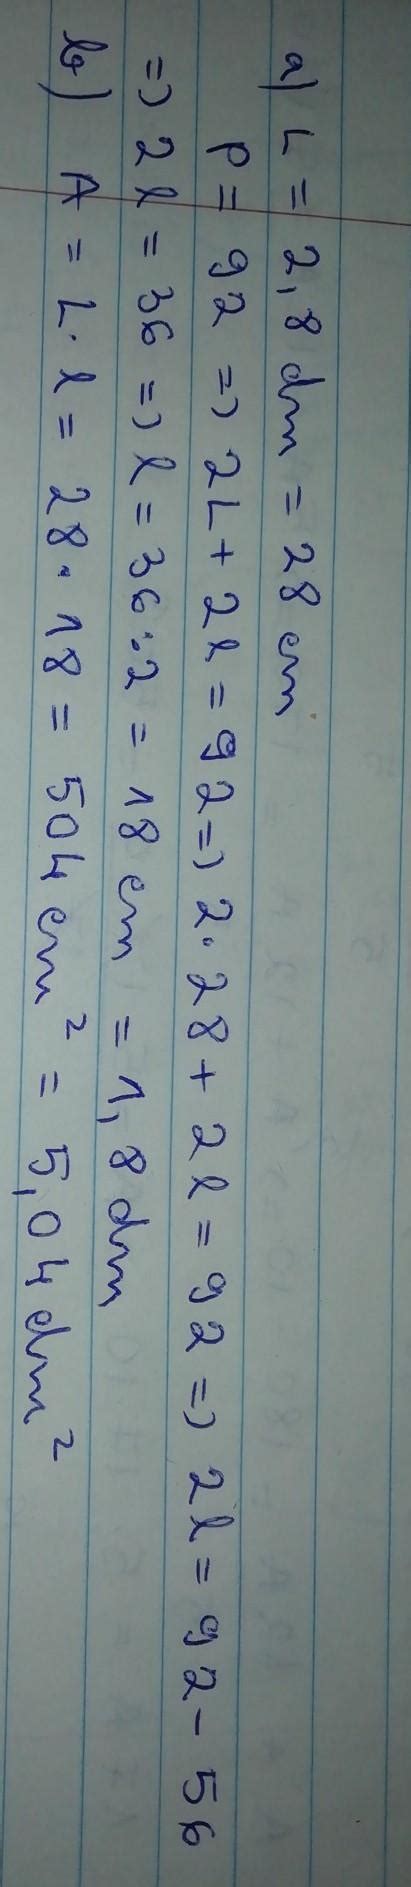 a) L = 2,8 dm = 28 cm
P = 92 => 2L + 2l = 92 => 2·28 + 2l = 92 => 2l = 92 - 56
=> 2l = 36 => l = 36:2 = 18 cm = 1,8 dm
b) A = L·l = 28·18 = 504 cm² = 5,04 dm²